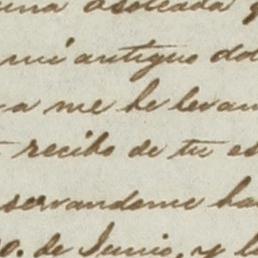 una asoleada
mi antiguo do
a me he levan
recibo de tu es
servandome ha
0. de Junio, y l